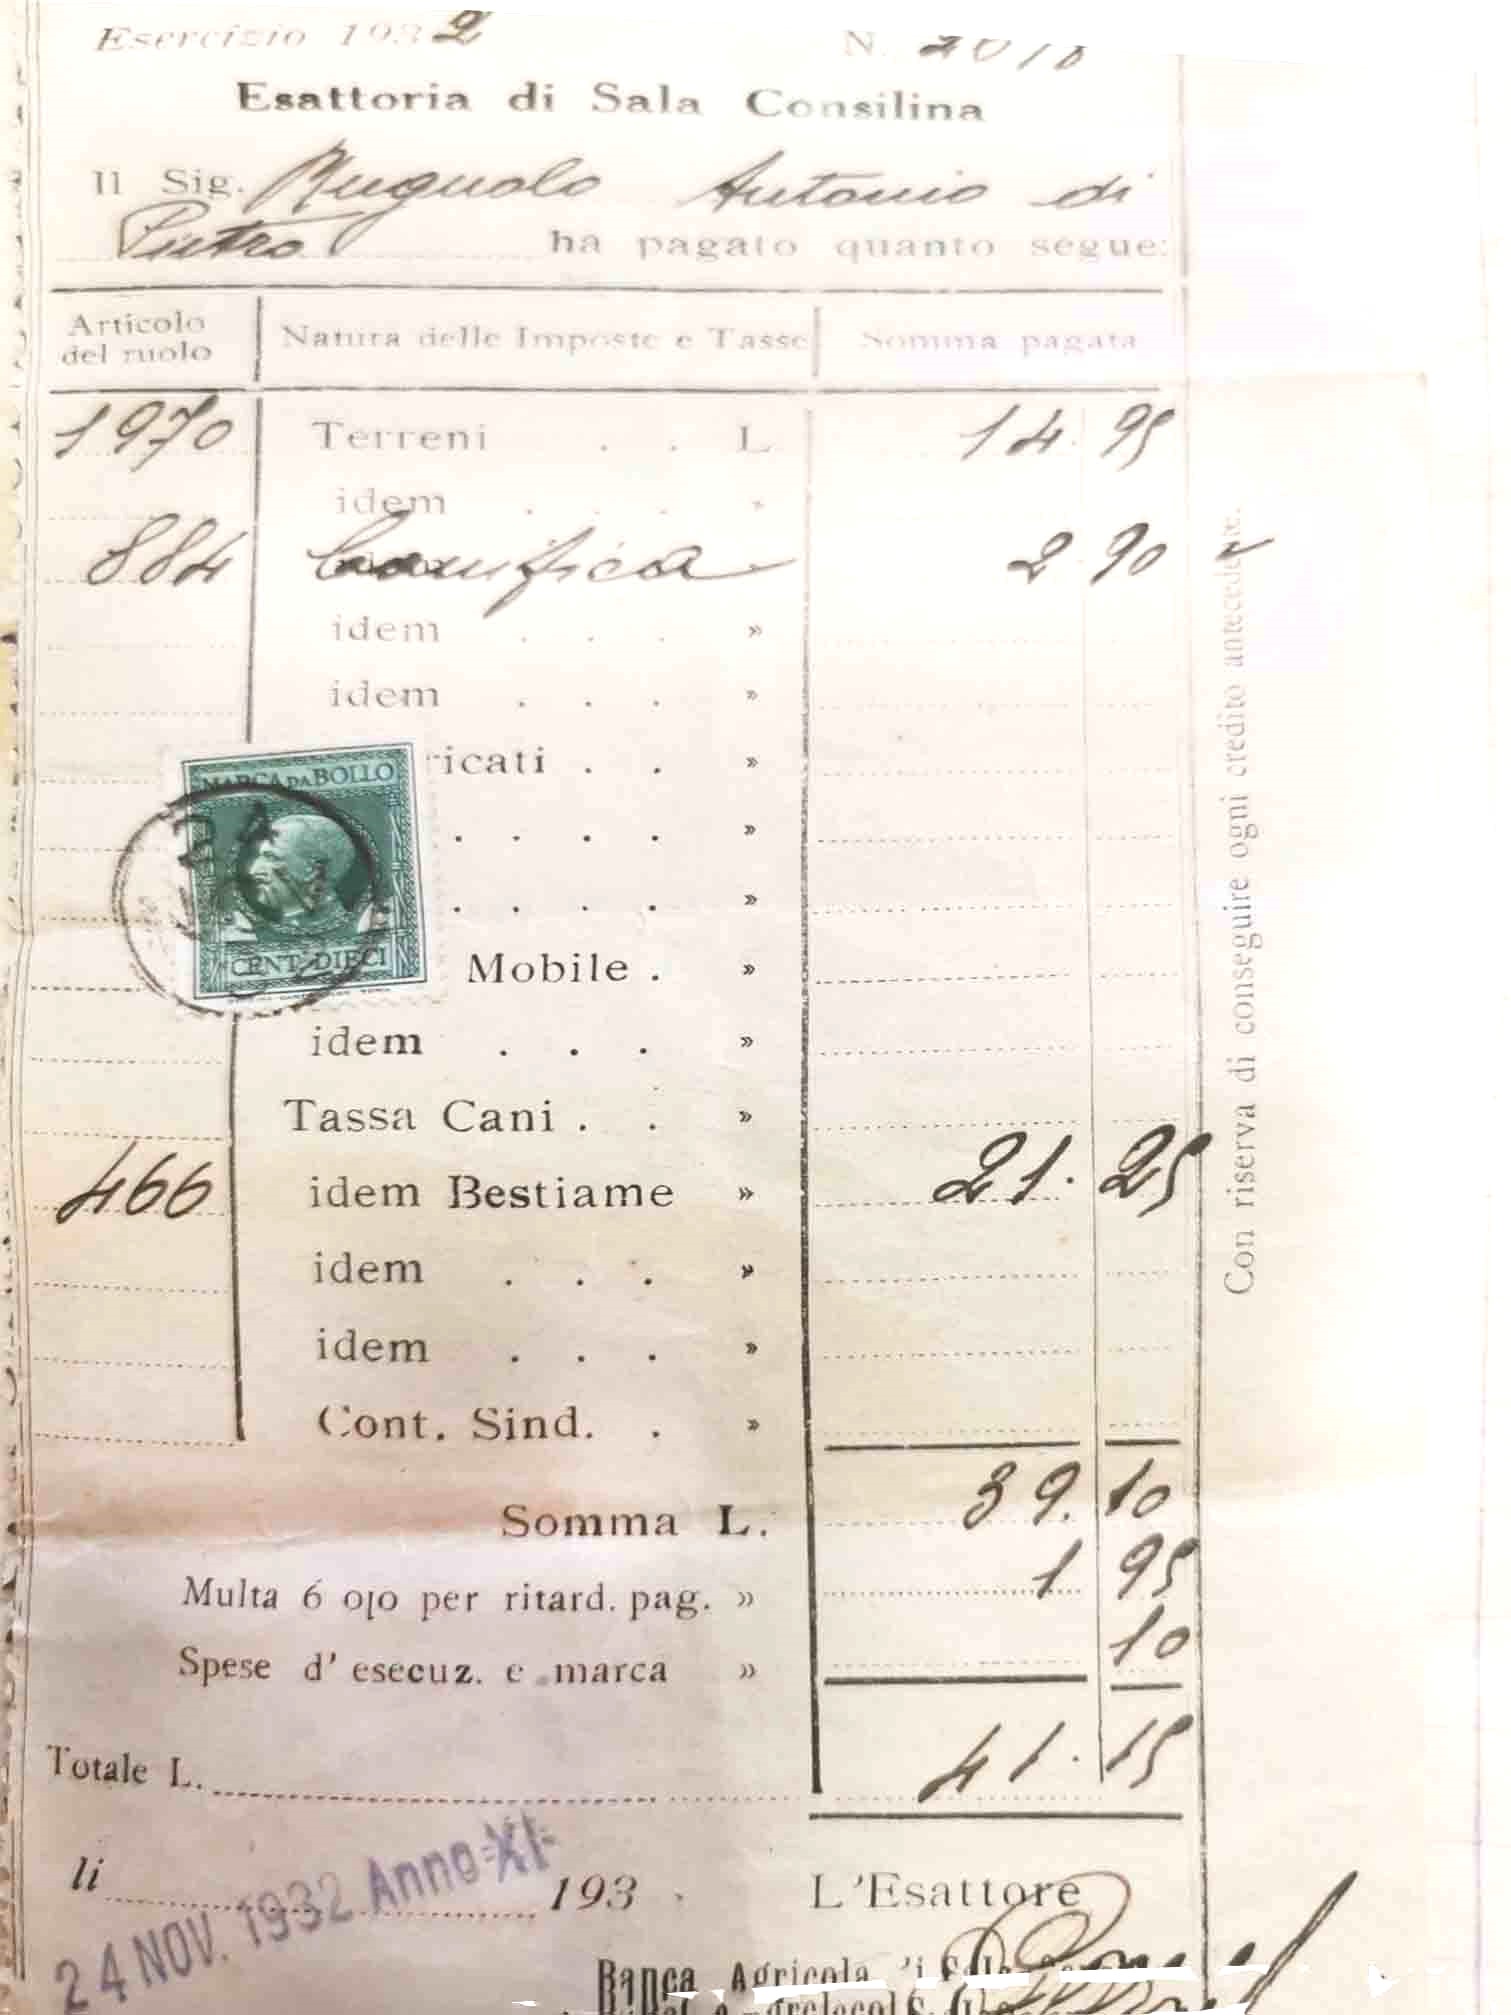 Esercizio 1932 N.
Esattoria di Sala Consilina
Il Sig. Rugnolo Antonio di
Pietro ha pagato quanto segue:
Articolo del ruolo Natura delle Imposte e Tasse Somma pagata
1970 Terreni . . L 14. 95
idem . . . »
884 bonifica 2 90
idem . . . »
idem . . . »
ricati . . »
. . . . »
. . . . »
Mobile . »
idem . . . »
Tassa Cani . . »
466 idem Bestiame » 21. 25
idem . . . »
idem . . . »
Cont. Sind. . »
Somma L. 39. 10
Multa 6 o|o per ritard. pag. » 1 95
Spese d' esecuz. e marca » 10
Totale L. 41. 15
li 193
24 NOV. 1932 Anno XI
L'Esattore
Banca Agricola
MARCA DA BOLLO
CENT. DIECI
Con riserva di conseguire ogni credito antecedente.